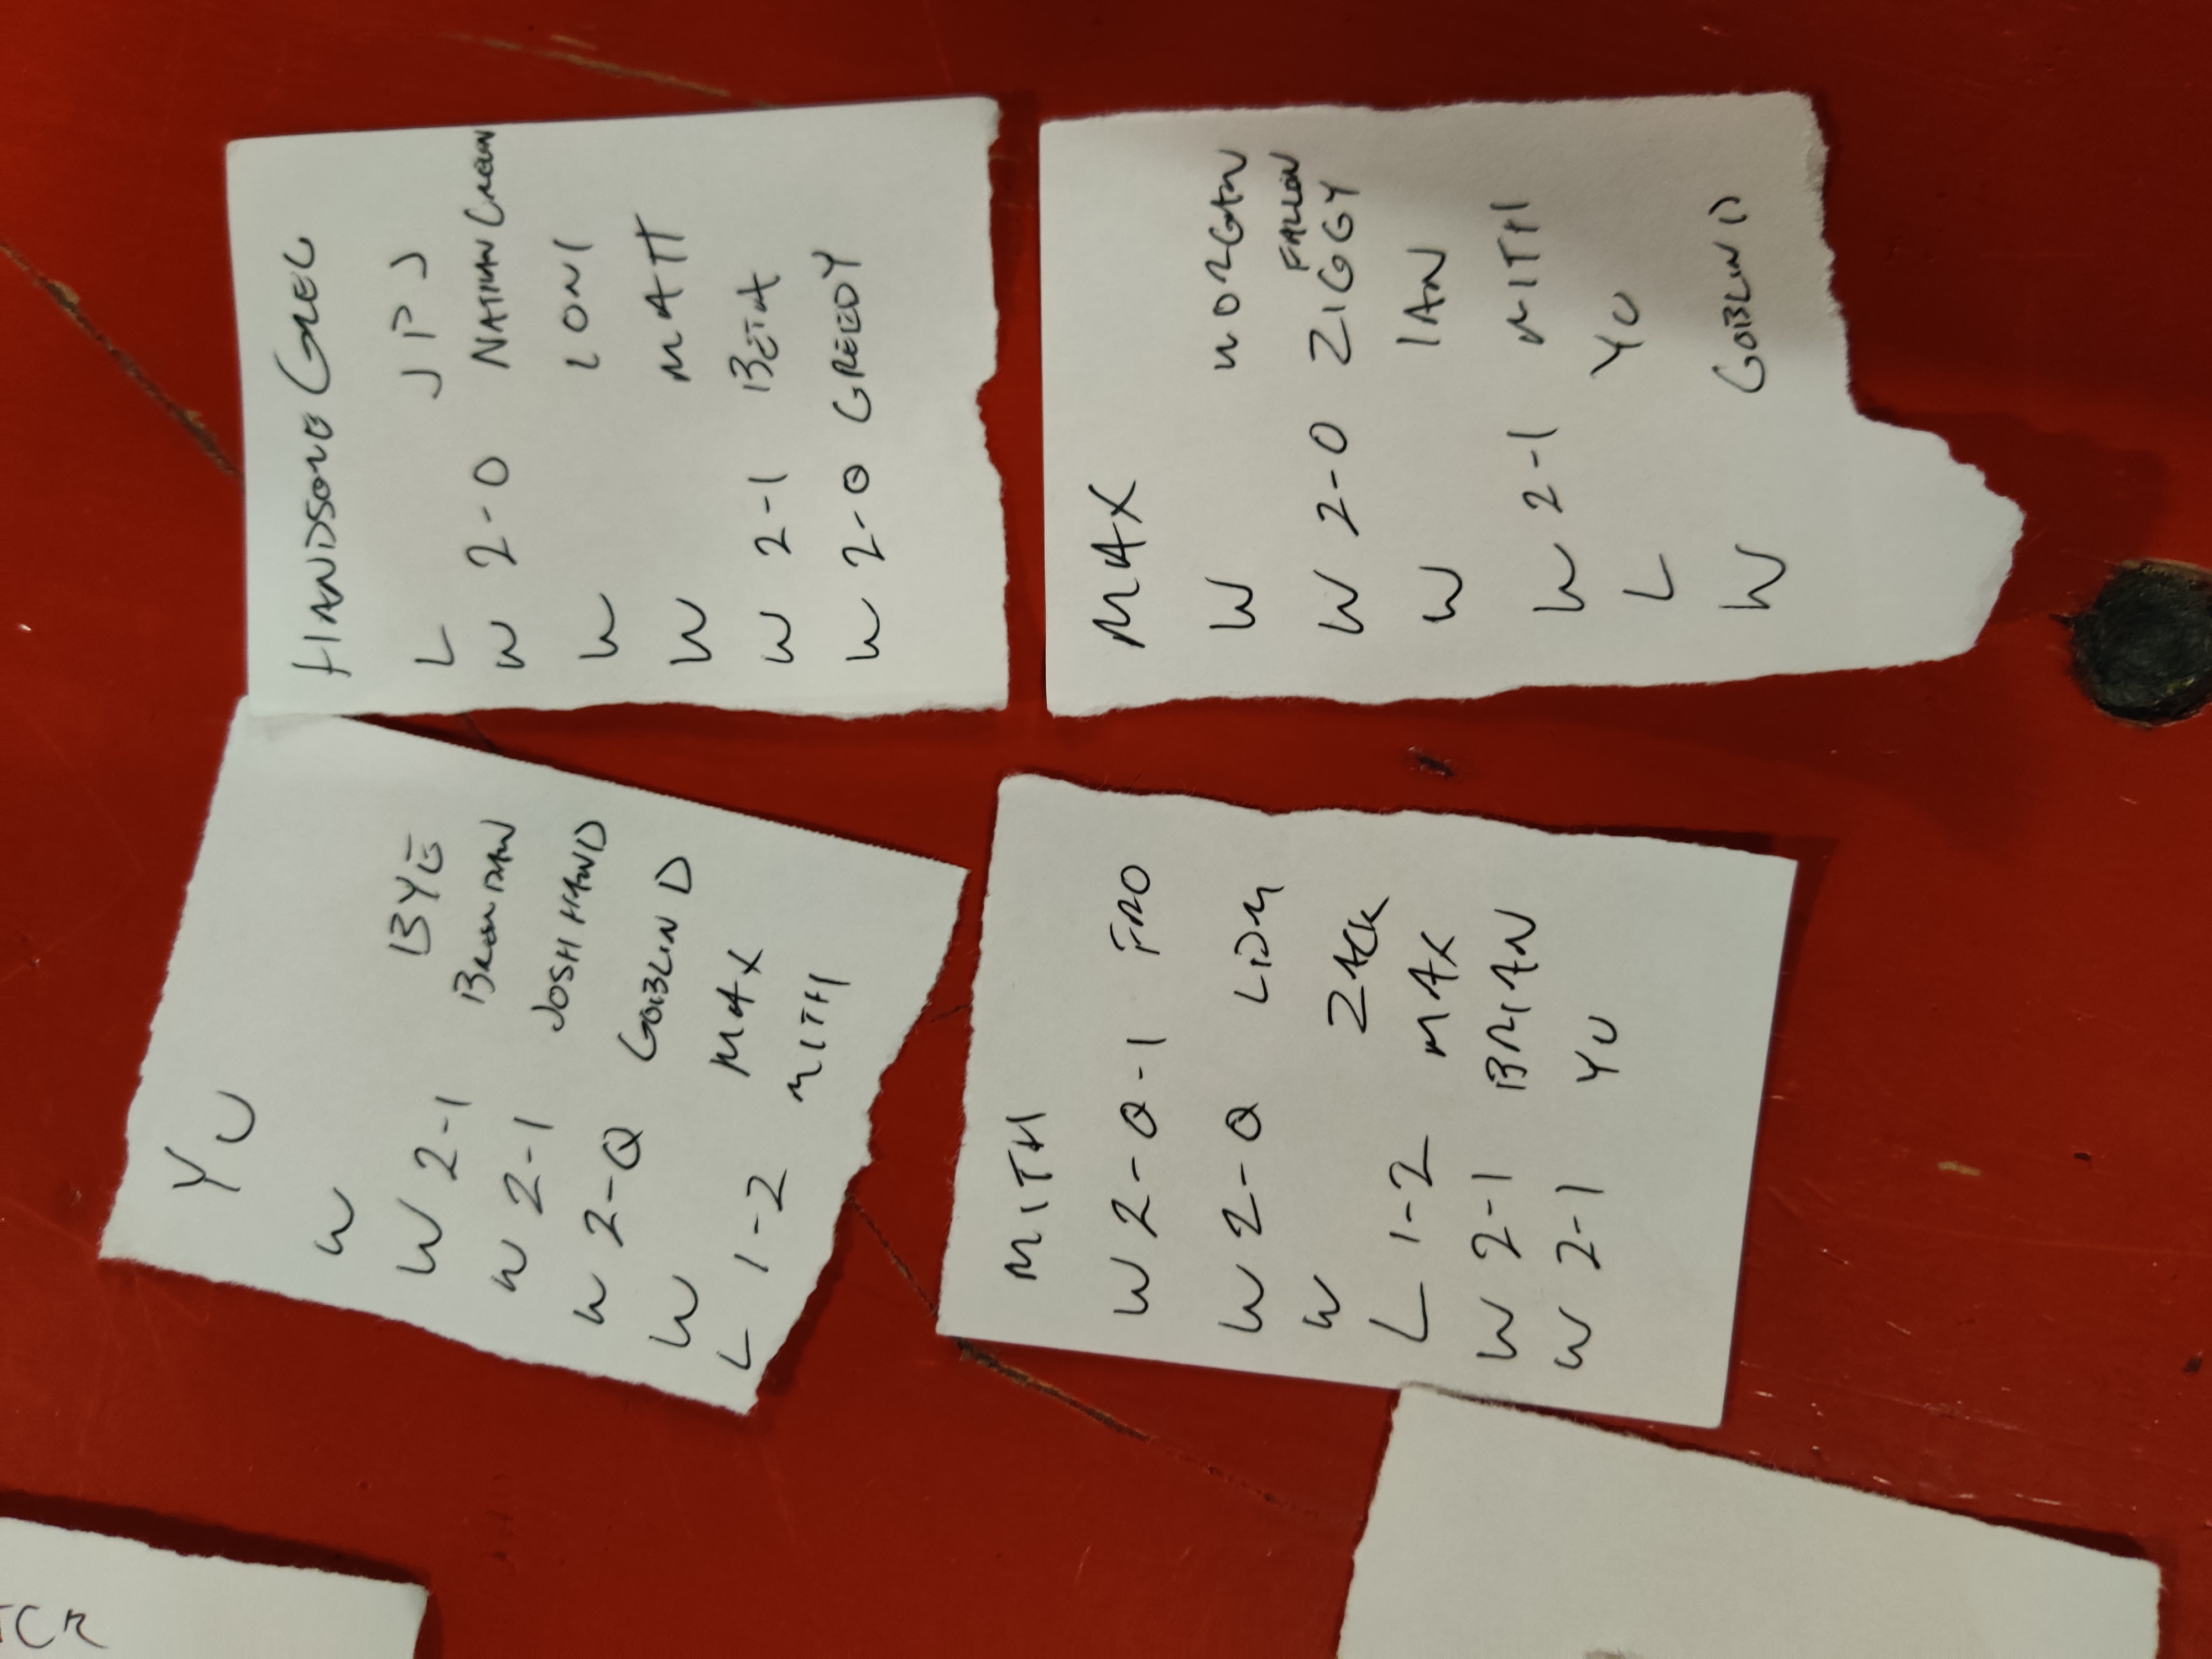 YU
W BYE
W 2-1 BRENDAN
W 2-1 JOSH HAND
W 2-0 GOBLIN D
W MAX
L 1-2 MITH
HANDSOME GREG
L JPJ
W 2-0 NATHAN GREEN
W LONI
W MATT
W 2-1 BETA
W 2-0 GREEDY
MITH
W 2-0-1 FRO
W 2-0 LDM
W ZACK
L 1-2 MAX
W 2-1 BRIAN
W 2-1 YU
MAX
W MORGAN
FALLON
W 2-0 ZIGGY
W IAN
W 2-1 MITH
L YU
W GOBLIN D